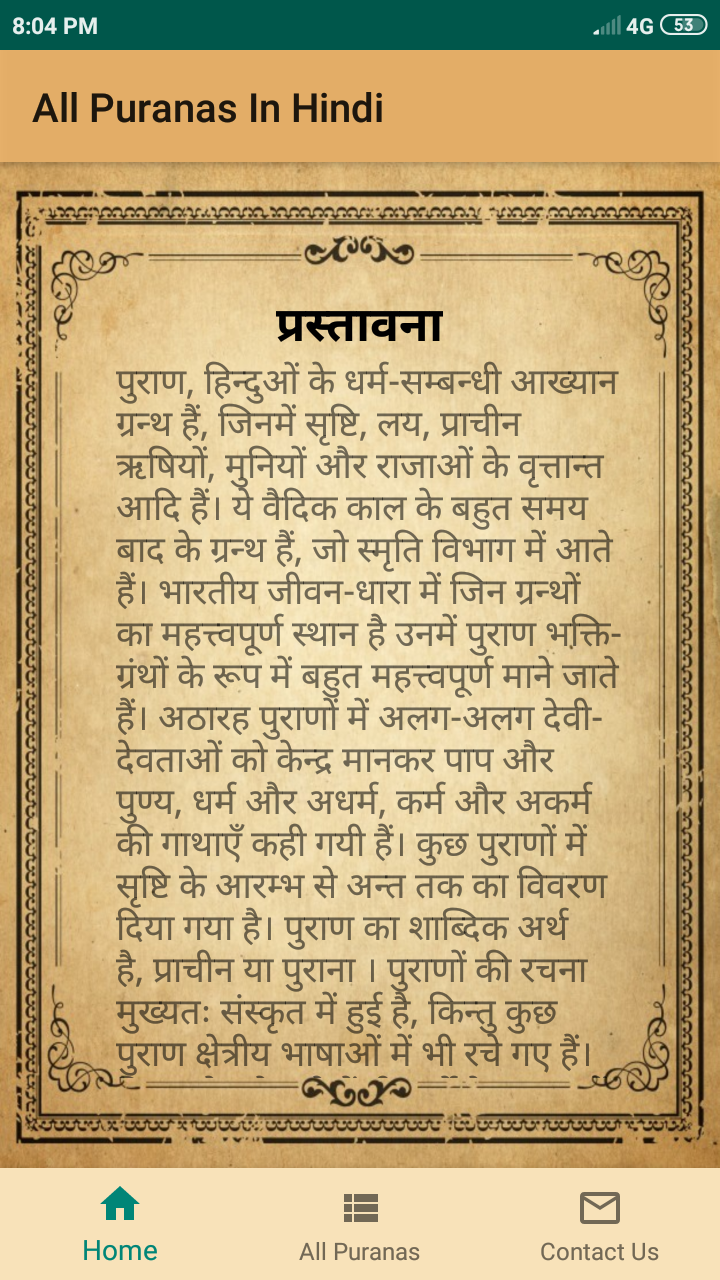 8:04 PM 4G 53
All Puranas In Hindi
प्रस्तावना
पुराण, हिन्दुओं के धर्म-सम्बन्धी आख्यान
ग्रन्थ हैं, जिनमें सृष्टि, लय, प्राचीन
ऋषियों, मुनियों और राजाओं के वृत्तान्त
आदि हैं। ये वैदिक काल के बहुत समय
बाद के ग्रन्थ हैं, जो स्मृति विभाग में आते
हैं। भारतीय जीवन-धारा में जिन ग्रन्थों
का महत्त्वपूर्ण स्थान है उनमें पुराण भक्ति-
ग्रंथों के रूप में बहुत महत्त्वपूर्ण माने जाते
हैं। अठारह पुराणों में अलग-अलग देवी-
देवताओं को केन्द्र मानकर पाप और
पुण्य, धर्म और अधर्म, कर्म और अकर्म
की गाथाएँ कही गयी हैं। कुछ पुराणों में
सृष्टि के आरम्भ से अन्त तक का विवरण
दिया गया है। पुराण का शाब्दिक अर्थ
है, प्राचीन या पुराना । पुराणों की रचना
मुख्यतः संस्कृत में हुई है, किन्तु कुछ
पुराण क्षेत्रीय भाषाओं में भी रचे गए हैं।
Home All Puranas Contact Us